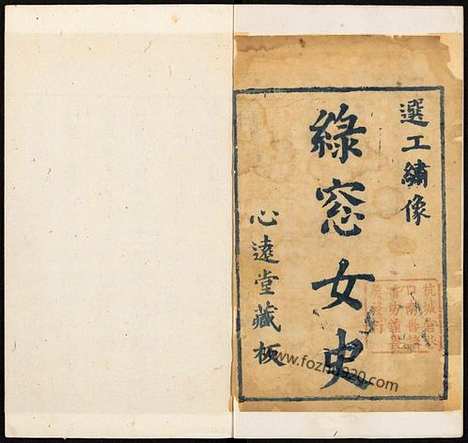 選工繡像
綠窓女史
心遠堂藏板
www.fozhu920.com